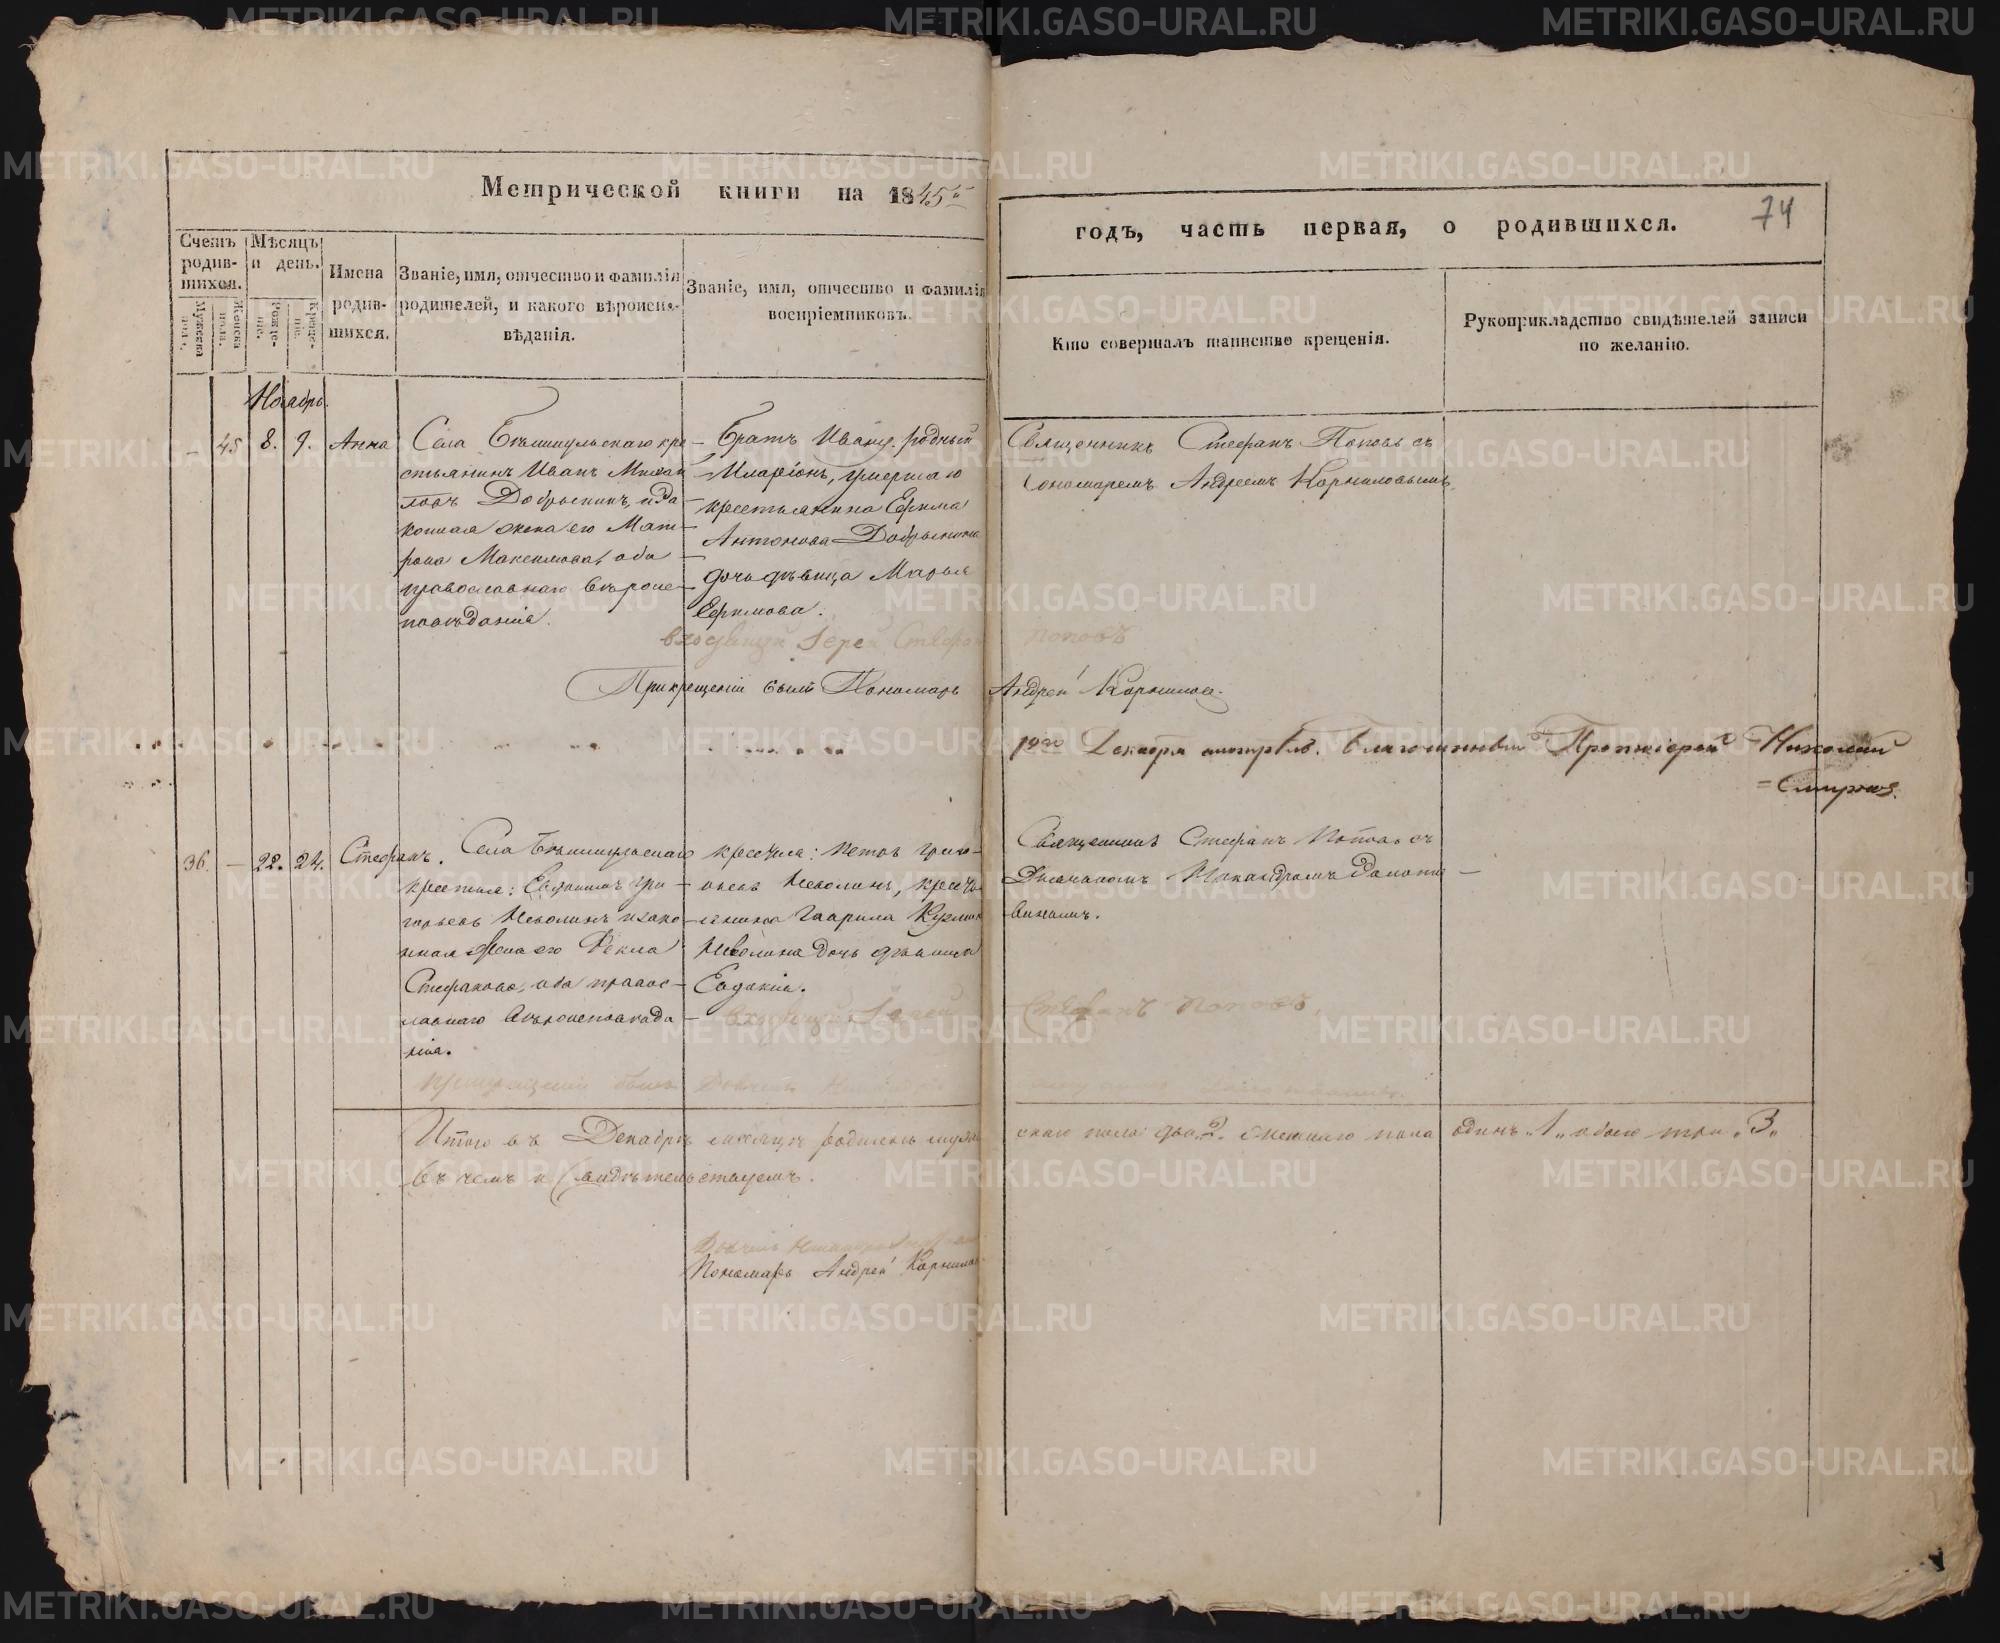 Метрической книги на 1845й
годъ, часть первая, о родившихся.
74
Счетъ родив-шихся.
Мужеска пола.
Женска пола.
Мѣсяцъ и день.
Рожде-нія.
Креще-нія.
Имена родив-шихся.
Званіе, имя, отчество и фамилія
родителей, и какого вѣроиспо-
вѣданія.
Званіе, имя, отчество и фамилія
воспріемниковъ.
Кто совершалъ таинство крещенія.
Рукоприкладство свидѣтелей записи
по желанію.
Ноябрь.
– 45 8. 9. Анна
Села кре-
стьянинъ Иванъ Михай
ловъ Добрынинъ, и за
конная жена его Мат-
рона Максимова, оба
православнаго вѣроис-
повѣданія.
Братъ Ивану родный
Иларіонъ, умершаго
крестьянина Ефима
Антонова Добрынина
дочь дѣвица Марья
Ефимова.
Священникъ Стефанъ Поповъ съ
пономаремъ Андреемъ Корниловымъ.
Іерей Стефанъ Поповъ
При крещеніи былъ Пономарь Андрей Корнилов
12го Декабря смотрѣлъ. Благочинный Протоіерей Николай
Смирновъ.
36. – 22. 24. Стефанъ.
Села
крестьян: Гри-
горьевъ Неволинъ и зако-
нная жена его Фекла
Стефанова, оба правос-
лавнаго вѣроисповѣда
нія.
крестьян: Петръ Григо-
рьевъ Неволинъ, кресть-
янина Гаврила Кузмина
Неволина дочь дѣвица
Евдокія.
Священникъ Стефанъ Поповъ съ
Дьячкомъ
Іерей Стефанъ Поповъ.
При крещеніи былъ Дьячекъ
Итого въ Декабрѣ месяцѣ родилось муже
скаго пола два „2„ женскаго пола одинъ „1„ обоего три „3„
въ чемъ и свидѣтельствуемъ.
Дьячекъ
Пономарь Андрей Корнилов
METRIKI.GASO-URAL.RU